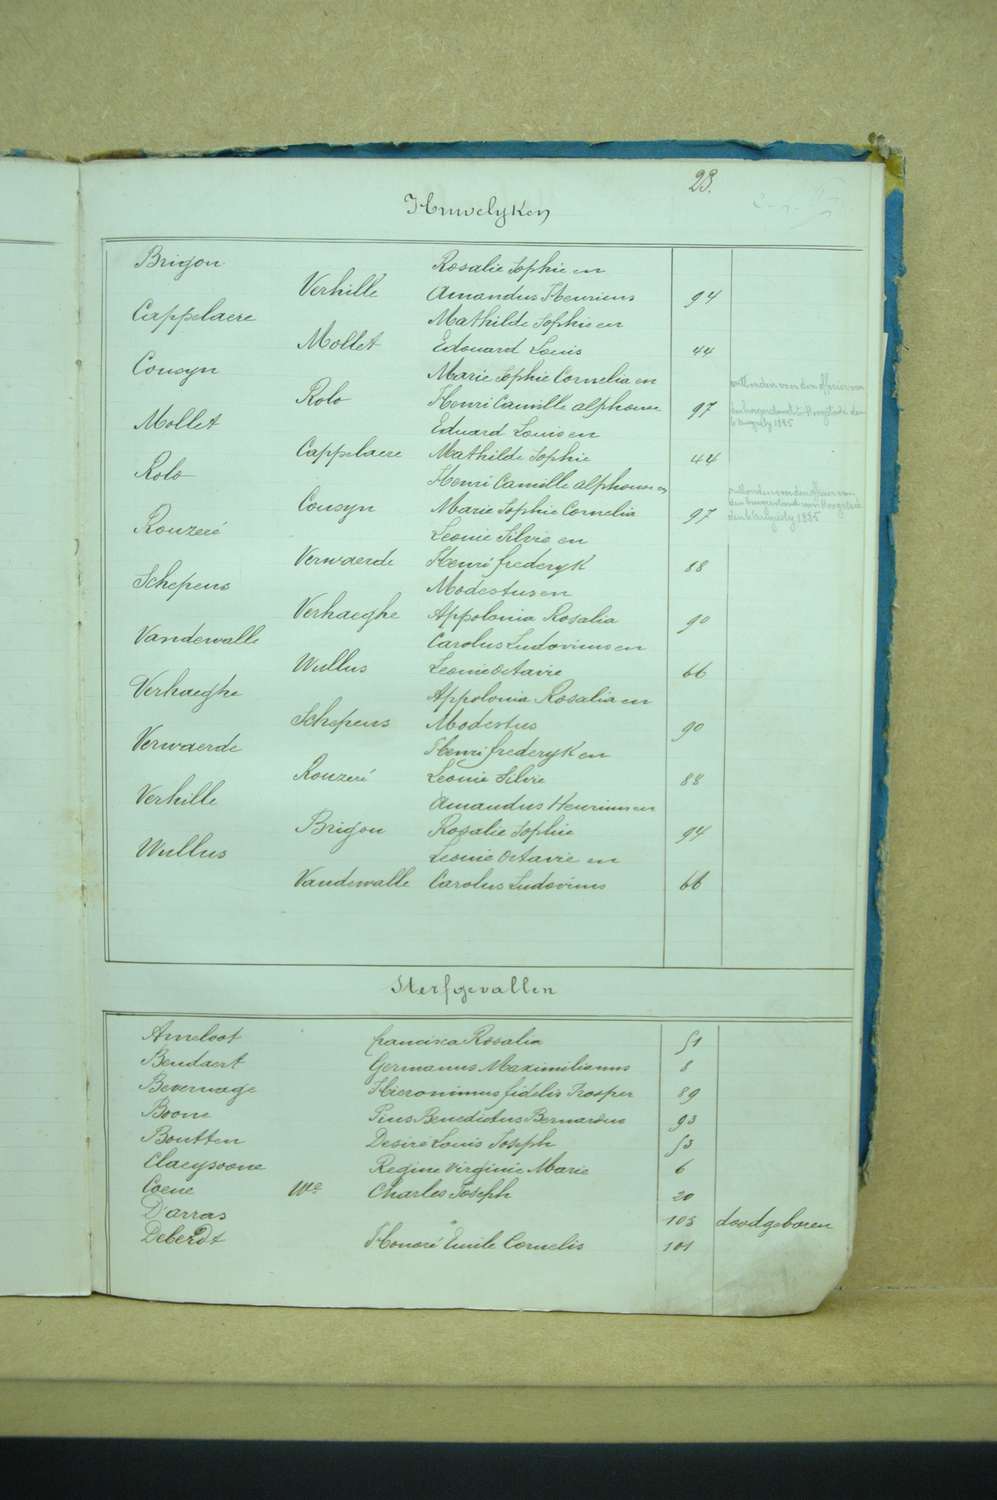 23.
Huwelyken
Brigou Rosalie Sophie en
Verhille Amandus Henricus 94
Cappelaere Mathilde Sophie en
Mollet Edouard Louis 44
Cousyn Marie Sophie Cornelia en
Rolo Henri Camille alphonse 97
Mollet Eduard Louis en
Cappelaere Mathilde Sophie 44
Rolo Henri Camille alphonse en
Cousyn Marie Sophie Cornelia 97
Rouzeré Leonie Silvie en
Verwaerde Henri frederyk 88
Schepens Modestus en
Verhaeghe Appolonia Rosalia 90
Vandewalle Carolus Ludovicus en
Wullus Leonie Octavie 66
Verhaeghe Appolonia Rosalia en
Schepens Modestus 90
Verwaerde Henri frederyk en
Rouzeré Leonie Silvie 88
Verhille Amandus Henricus en
Brigou Rosalie Sophie 94
Wullus Leonie Octavie en
Vandewalle Carolus Ludovicus 66
Sterfgevallen
Ameloot francisca Rosalia 51
Beudaert Germanus Maximilianus 8
Bevernage Hieronimus fidelis Prosper 89
Boone Pius Benedictus Bernardus 93
Boutten Desiré Louis Joseph 53
Claeysoone Regine Virginie Marie 6
Coene We Charles Joseph 20
D'arras 105 doodgeboren
Deberdt Honoré Emile Cornelis 101